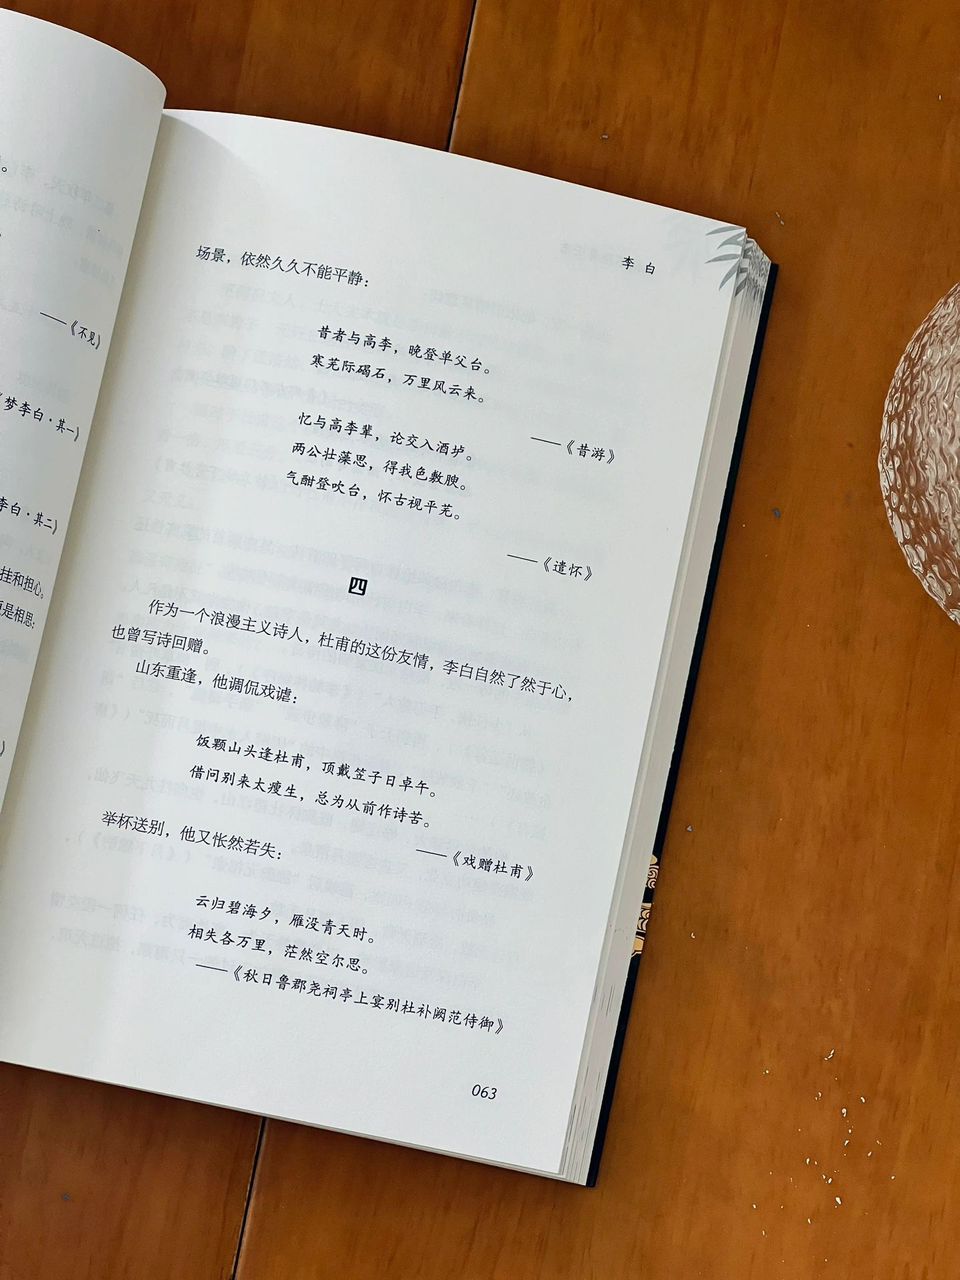 。
——《不见》
梦李白·其一》
李白·其二》
挂和担心。
更是相思;
李 白
场景，依然久久不能平静：
昔者与高李，晚登单父台。
寒芜际碣石，万里风云来。
——《昔游》
忆与高李辈，论交入酒垆。
两公壮藻思，得我色敷腴。
气酣登吹台，怀古视平芜。
——《遣怀》
四
作为一个浪漫主义诗人，杜甫的这份友情，李白自然了然于心，
也曾写诗回赠。
山东重逢，他调侃戏谑：
饭颗山头逢杜甫，顶戴笠子日卓午。
借问别来太瘦生，总为从前作诗苦。
——《戏赠杜甫》
举杯送别，他又怅然若失：
云归碧海夕，雁没青天时。
相失各万里，茫然空尔思。
——《秋日鲁郡尧祠亭上宴别杜补阙范侍御》
063